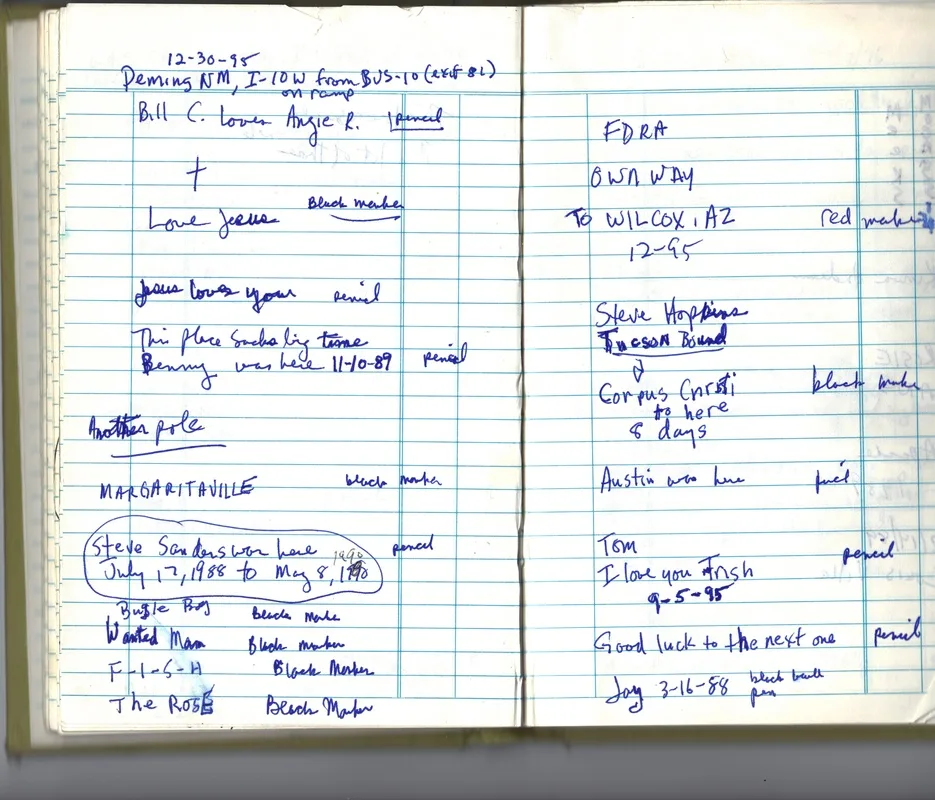 12-30-95
Deming NM, I-10W from BUS-10 (exit 81)
on ramp
Bill C. Loves Angie R. pencil
†
Love Jesus Black marker
Jesus loves your pencil
This place sucks big time
Benny was here 11-10-89 pencil
Another pole
MARGARITAVILLE black marker
Steve Sanders was here 1990 pencil
July 17, 1988 to May 8, 1990
Bugle Boy Black Marker
Wanted Man Black marker
F-I-S-H Black Marker
The ROSE Black Marker
FDRA
OWN WAY
TO WILCOX, AZ red marker
12-95
Steve Hopkins
Tucson Bound
Corpus Cristi black marker
to here
8 days
Austin was here pencil
Tom
I love you Trish pencil
9-5-95
Good luck to the next one pencil
Jay 3-16-88 black ball
pen